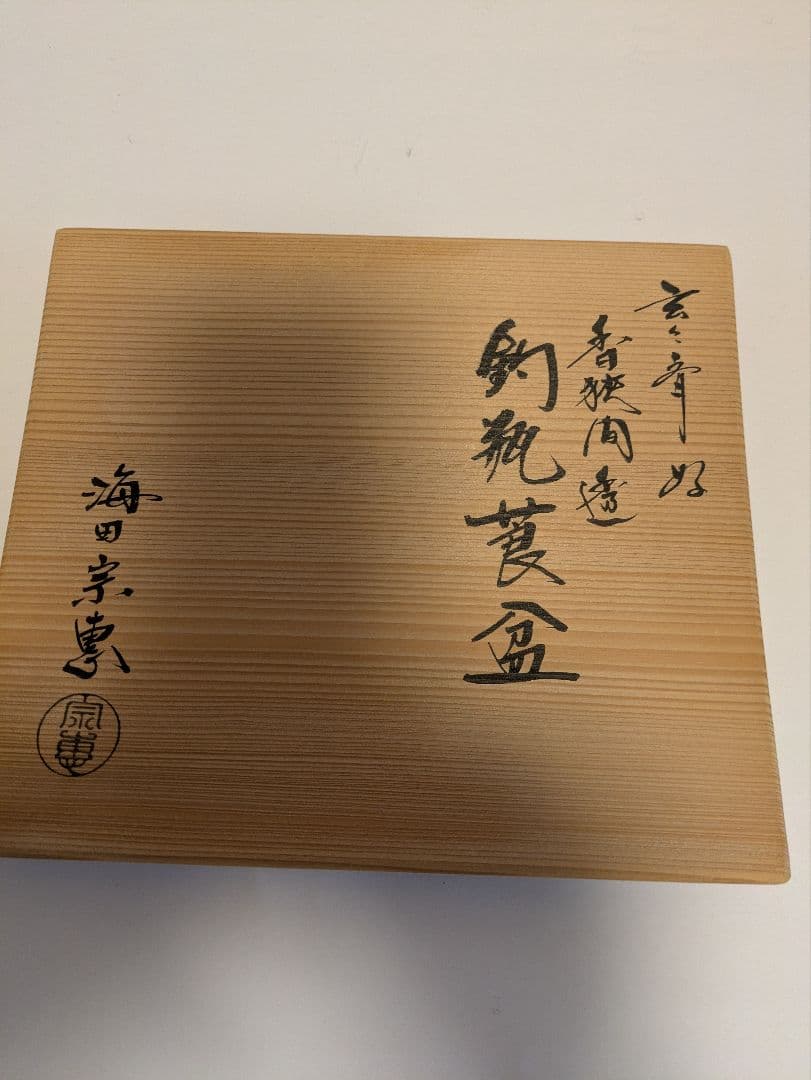 玄々斎好
香狭間透
釣瓶莨盆
海田宗恵
宗恵